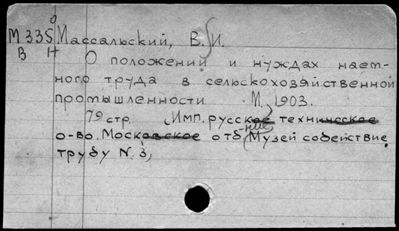 М 335 Массальский, В. И.
В 17
О положении и нуждах наем-
ного труда в сельскохозяйственной
промышленности М. 1903.
79 стр. (Имп. русское техническое
о-во. Московское отд-ние Музей содействие
труду N. 3)